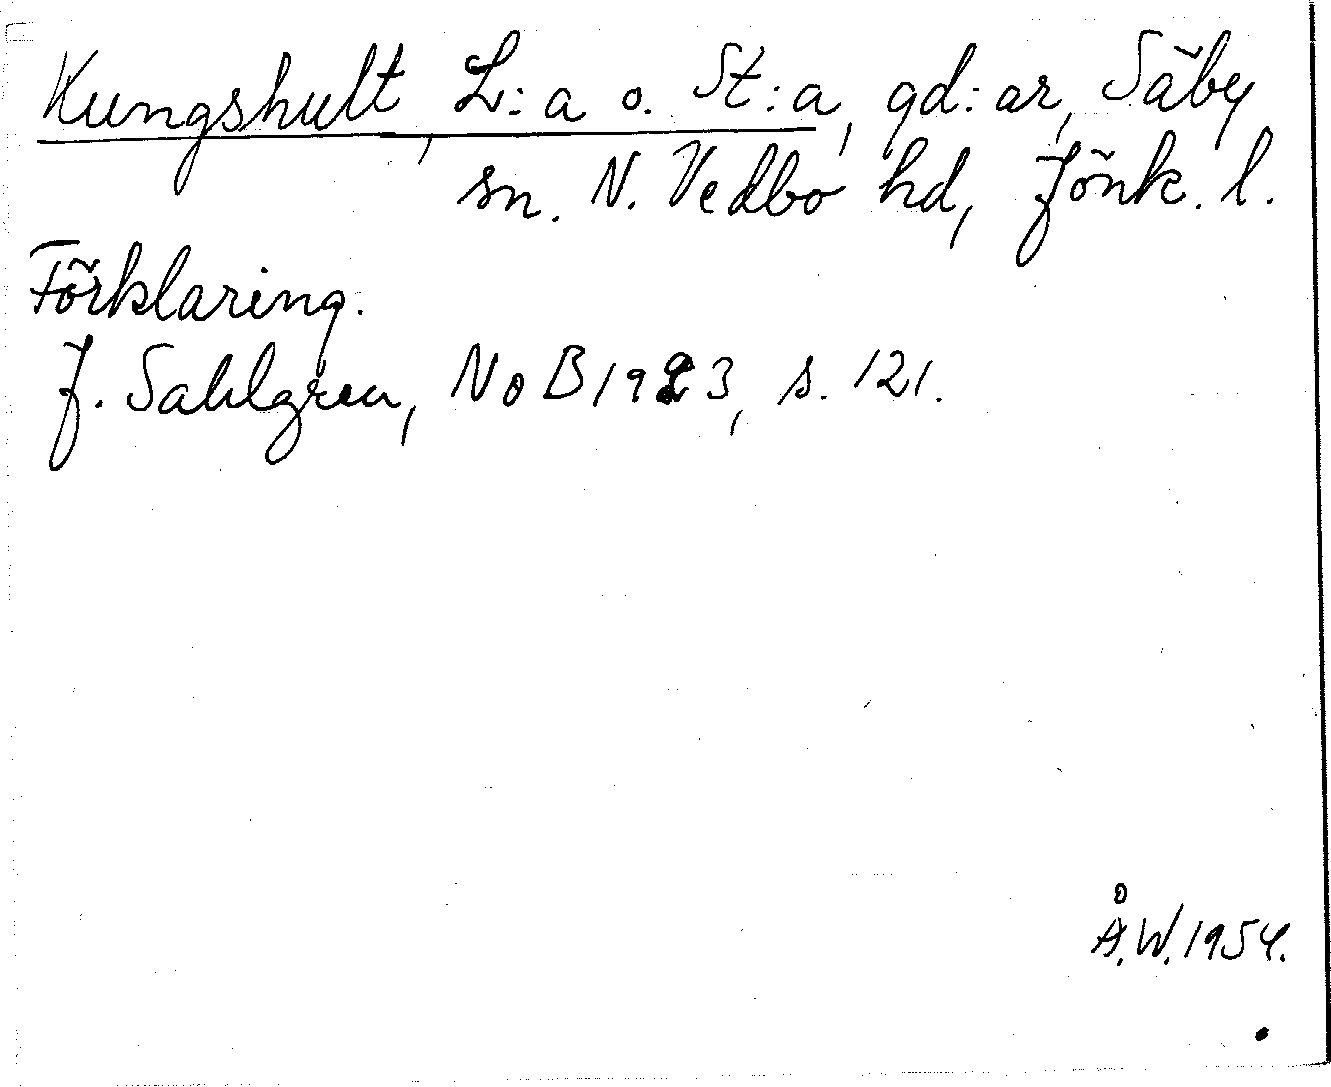 Kungshult, L:a o. St:a, gd:ar, Säby
sn. N. Vedbo hd, Jönk. l.
Förklaring.
J. Sahlgren, NoB 1923, s. 121.
Å.W. 1954.